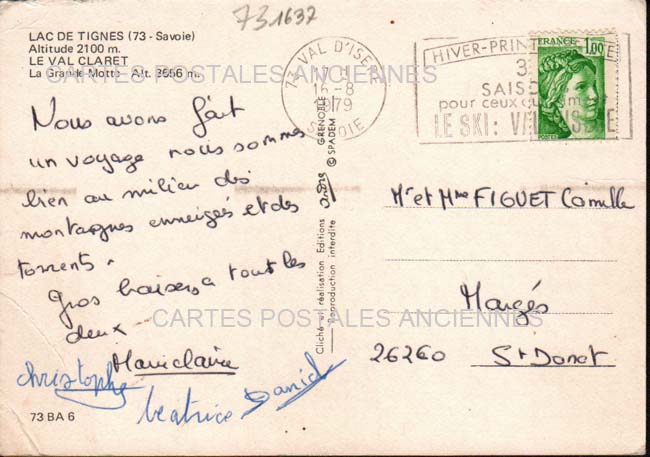 731637
LAC DE TIGNES (73 - Savoie)
Altitude 2100 m.
LE VAL CLARET
La Grande Motte - Alt. 3656 m.
CARTES POSTALES ANCIENNES
73 VAL D'ISERE
16-8
1979
SAVOIE
HIVER-PRINT
SAIS
pour ceux qu
LE SKI: VAL
FRANCE 1,00
Nous avons fait
un voyage nous sommes
bien au milieu des
montagnes enneigés et des
torrents.
Gros baisers a tout les
deux
Marieclaire
christophe
beatrice Daniel
73 BA 6
Cliché et réalisation Editions andre GRENOBLE
Reproduction interdite © SPADEM
Mr et Mme FIGUET Camille
Margés
CARTES POSTALES ANCIENNES
26260 St Donat